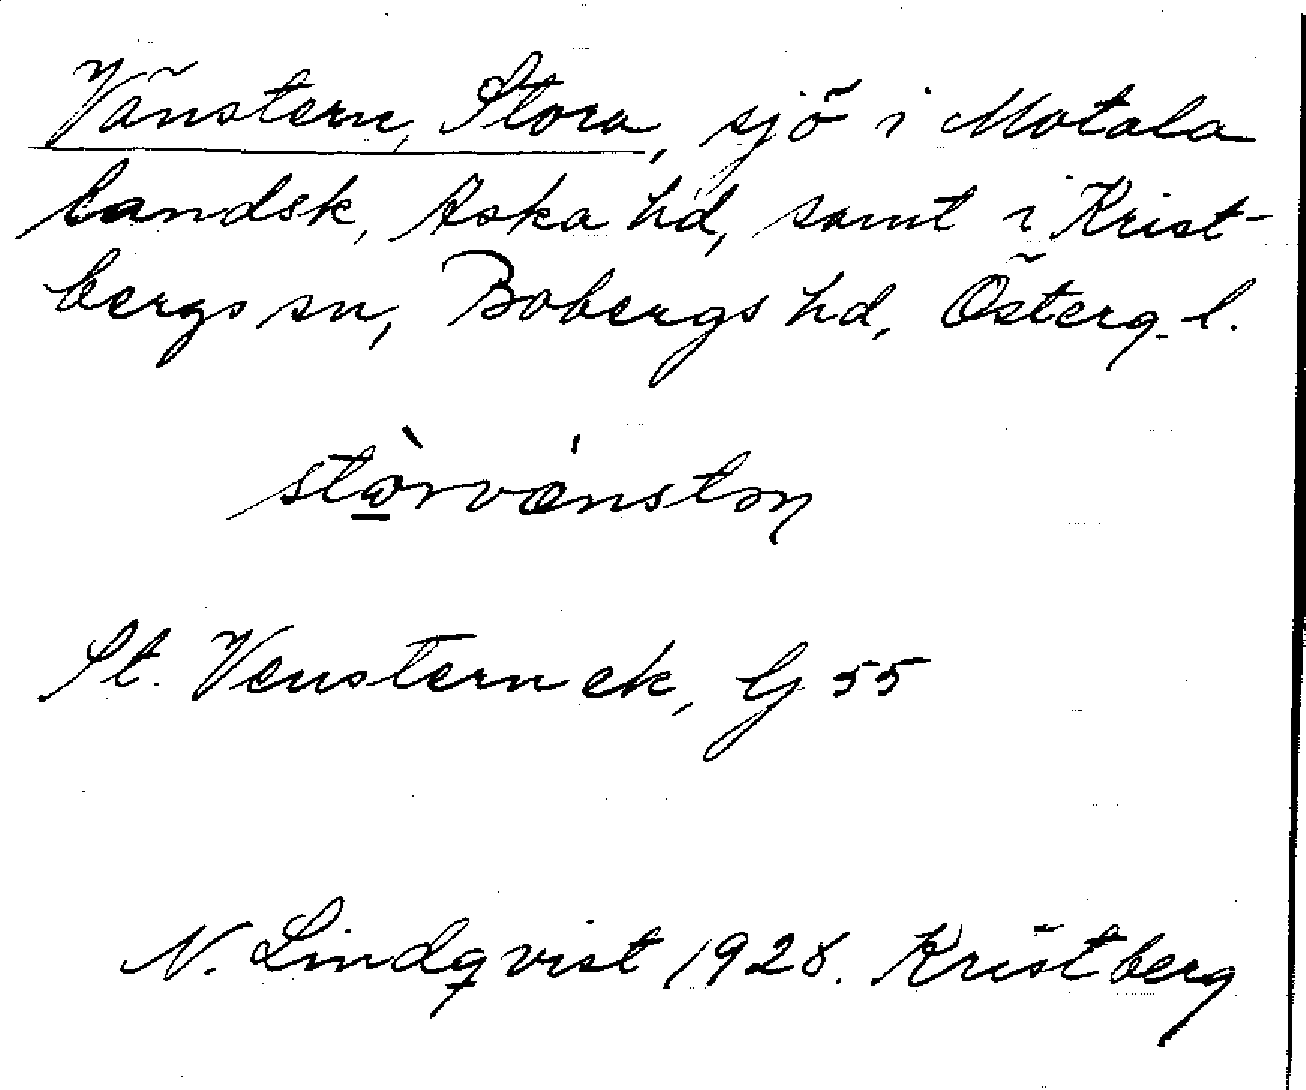 Vänstern, Stora, sjö i Motala
landsk, Aska hd, samt i Krist-
bergs sn, Bobergs hd, Österg. l.
stò̲rvǽnstəɳ
St. Vensternek, G 55
N. Lindqvist 1928. Kristberg